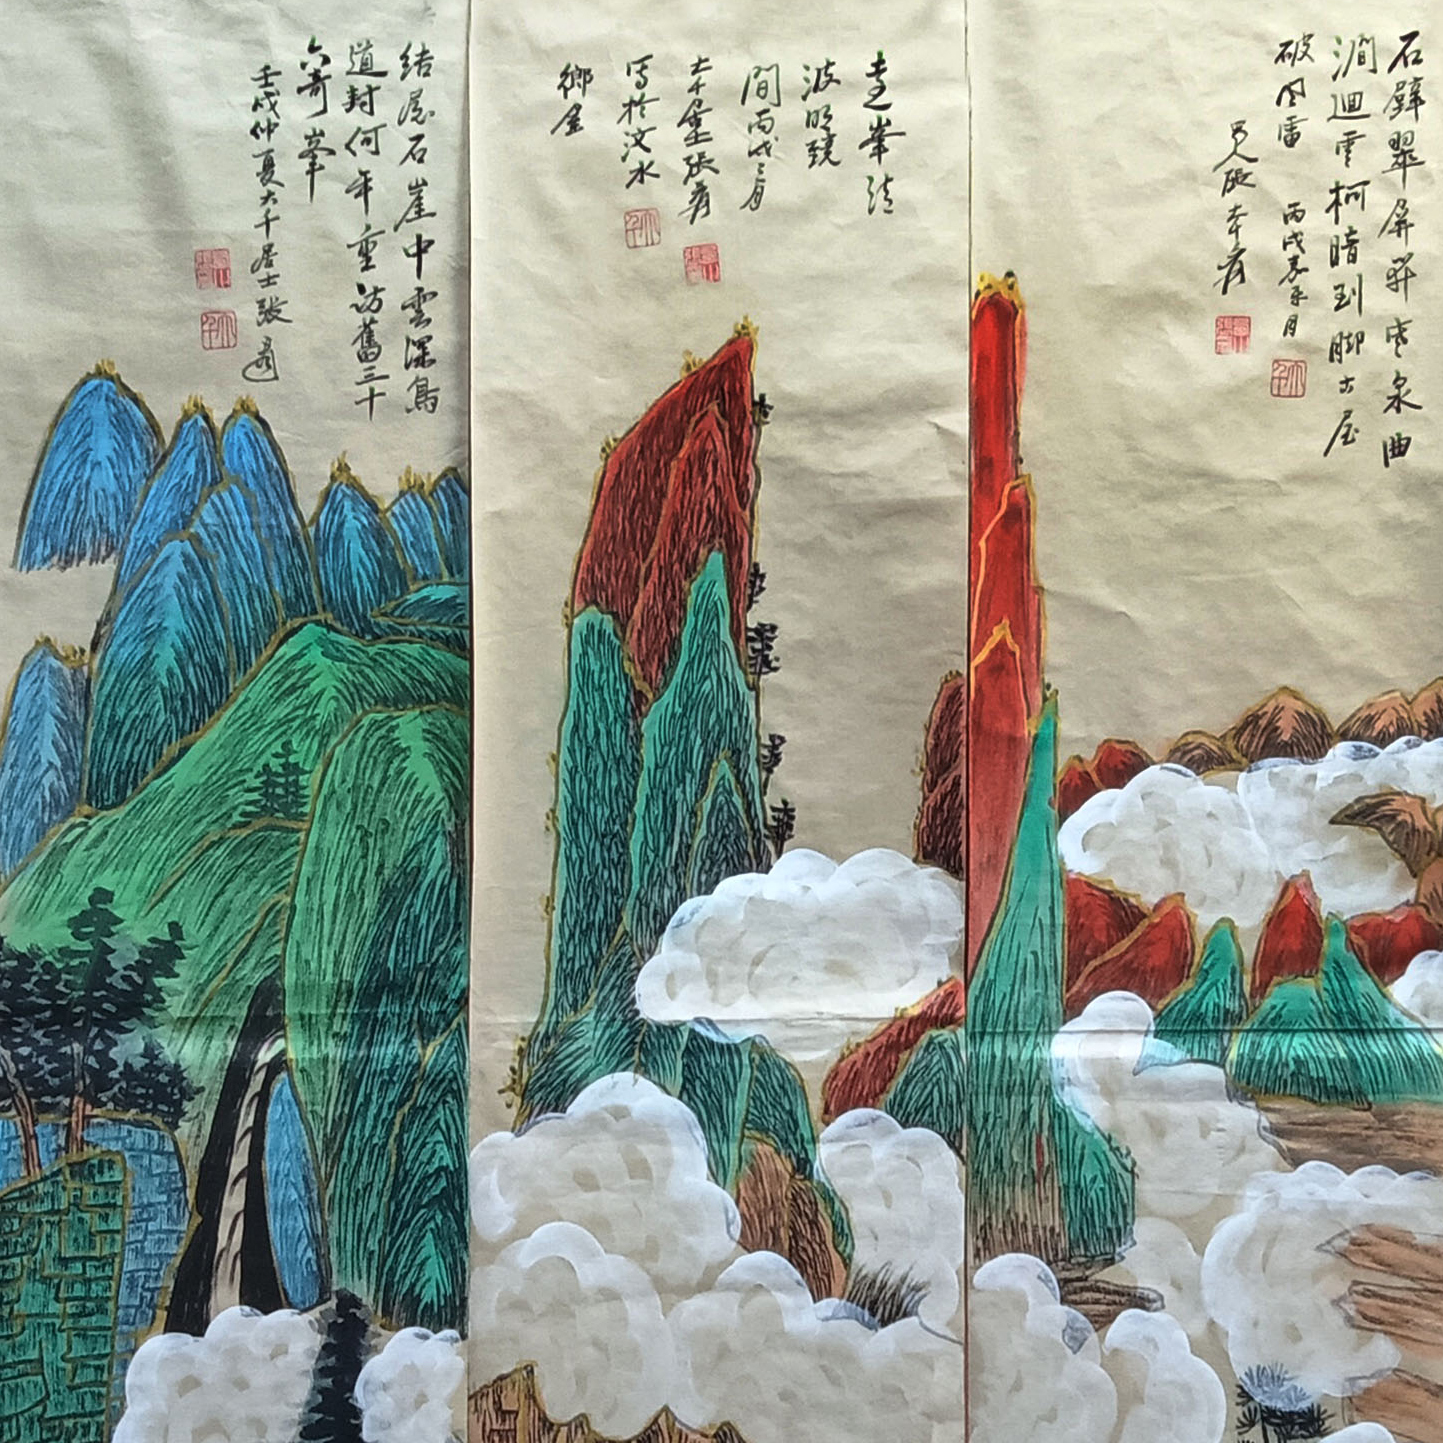 石壁翠屏泉曲
澗迴雲柯暗到脚古屋
破風雷 丙戌嘉平月
蜀人張大爰
峯
波明鏡
間丙戌三月
大千居士張爰
寫於汶水
鄉居
結屋石崖中雲深鳥
道封何年重訪舊三十
六奇峯
壬戌仲夏大千居士張爰